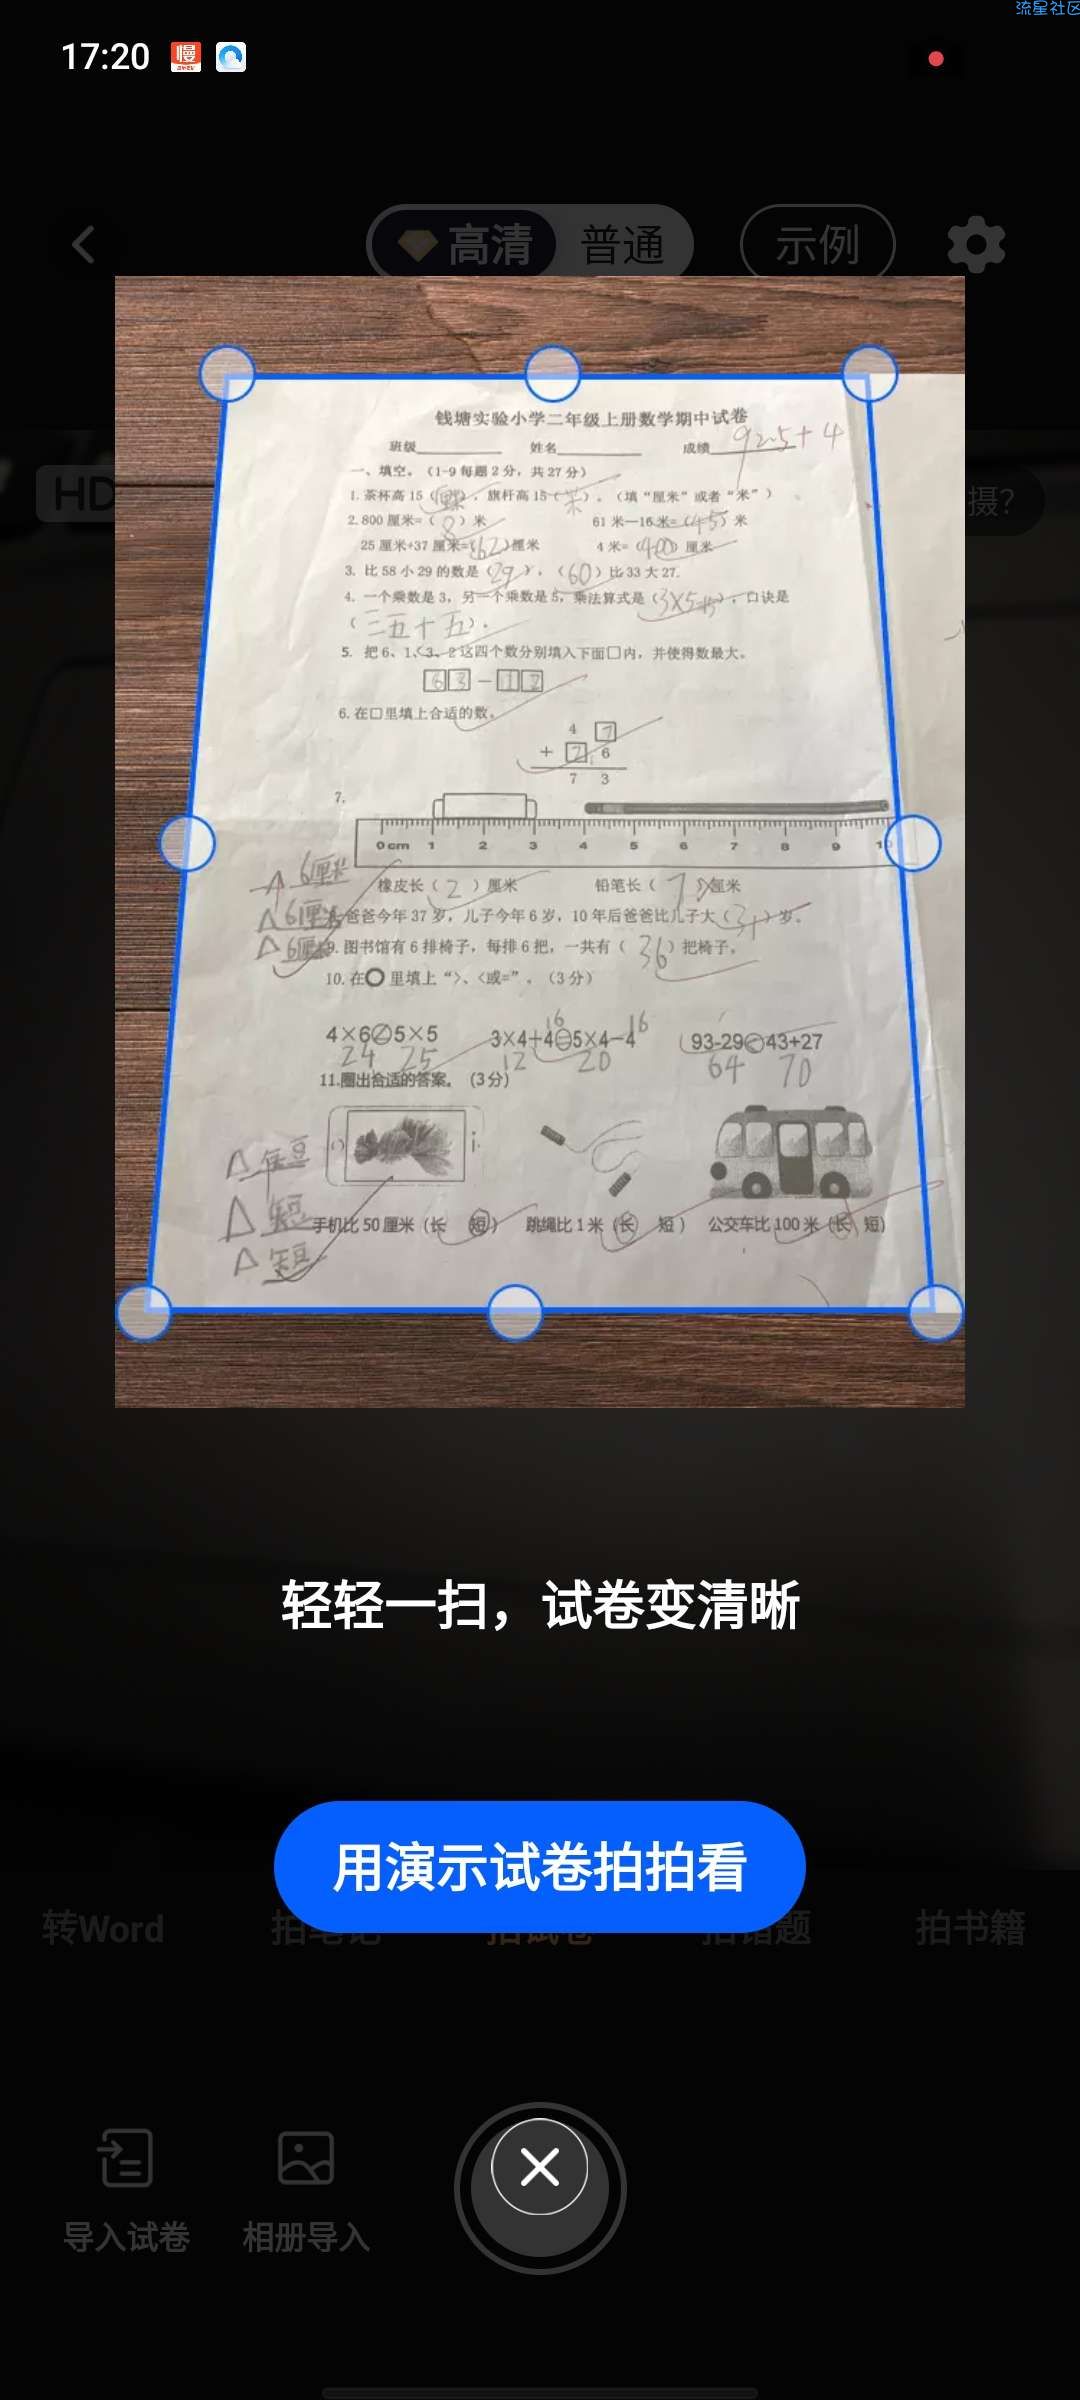 流星社区
17:20
高清 普通 示例
HD
摄?
钱塘实验小学二年级上册数学期中试卷
班级 姓名 成绩 92.5+4
一、填空。(1-9每题2分,共27分)
1. 茶杯高15(厘米),旗杆高15(米)。(填“厘米”或者“米”)
2. 800厘米=(8)米 61米—16米=(45)米
25厘米+37厘米=(62)厘米 4米=(400)厘米
3. 比58小29的数是(29),(60)比33大27.
4. 一个乘数是3,另一个乘数是5,乘法算式是(3×5),口诀是
(三五十五).
5. 把6、1、3、2这四个数分别填入下面□内,并使得数最大。
63-12
6. 在□里填上合适的数。
4 7
+ 2 6
7 3
7.
0cm 1 2 3 4 5 6 7 8 9 10
6厘米 橡皮长(2)厘米 铅笔长(7)厘米
6厘米 爸爸今年37岁,儿子今年6岁,10年后爸爸比儿子大(31)岁。
6厘米 9. 图书馆有6排椅子,每排6把,一共有(36)把椅子。
10. 在○里填上“>、<或=”。(3分)
4×6<5×5 3×4+4=5×4-4 93-29<43+27
24 25 12 16 20 16 64 70
11.圈出合适的答案。(3分)
短
短 手机比50厘米(长 短) 跳绳比1米(长 短) 公交车比100米(长 短)
短
轻轻一扫,试卷变清晰
用演示试卷拍拍看
转Word 拍笔记 拍试卷 拍错题 拍书籍
导入试卷 相册导入